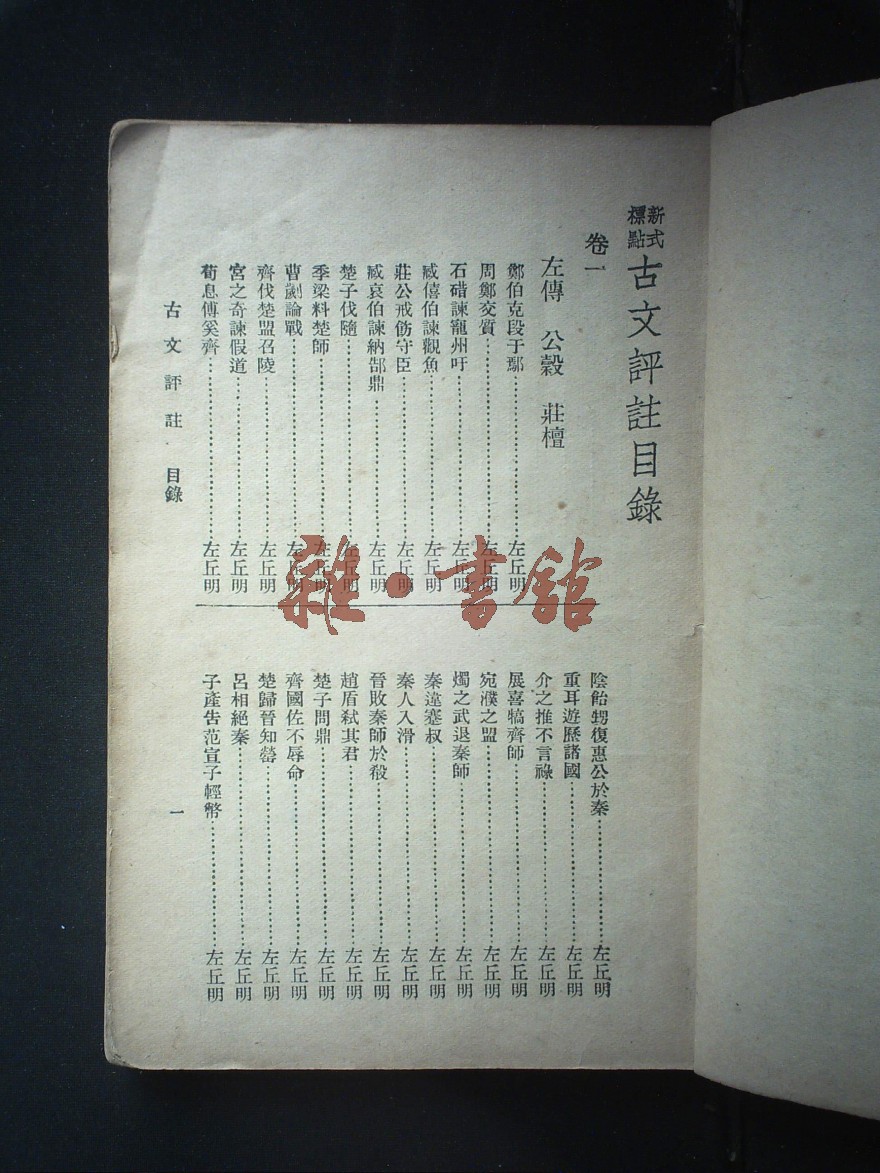 新式標點 古文評註目錄
卷一
左傳 公穀 莊檀
鄭伯克段于鄢 左丘明
周鄭交質 左丘明
石碏諫寵州吁 左丘明
臧僖伯諫觀魚 左丘明
莊公戒飭守臣 左丘明
臧哀伯諫納郜鼎 左丘明
楚子伐隨 左丘明
季梁料楚師 左丘明
曹劌論戰 左丘明
齊伐楚盟召陵 左丘明
宮之奇諫假道 左丘明
荀息傅奚齊 左丘明
陰飴甥復惠公於秦 左丘明
重耳遊歷諸國 左丘明
介之推不言祿 左丘明
展喜犒齊師 左丘明
宛濮之盟 左丘明
燭之武退秦師 左丘明
秦違蹇叔 左丘明
秦人入滑 左丘明
晉敗秦師於殽 左丘明
趙盾弒其君 左丘明
楚子問鼎 左丘明
齊國佐不辱命 左丘明
楚歸晉知罃 左丘明
呂相絕秦 左丘明
子產告范宣子輕幣 左丘明
古文評註 目錄
一
雜·書館